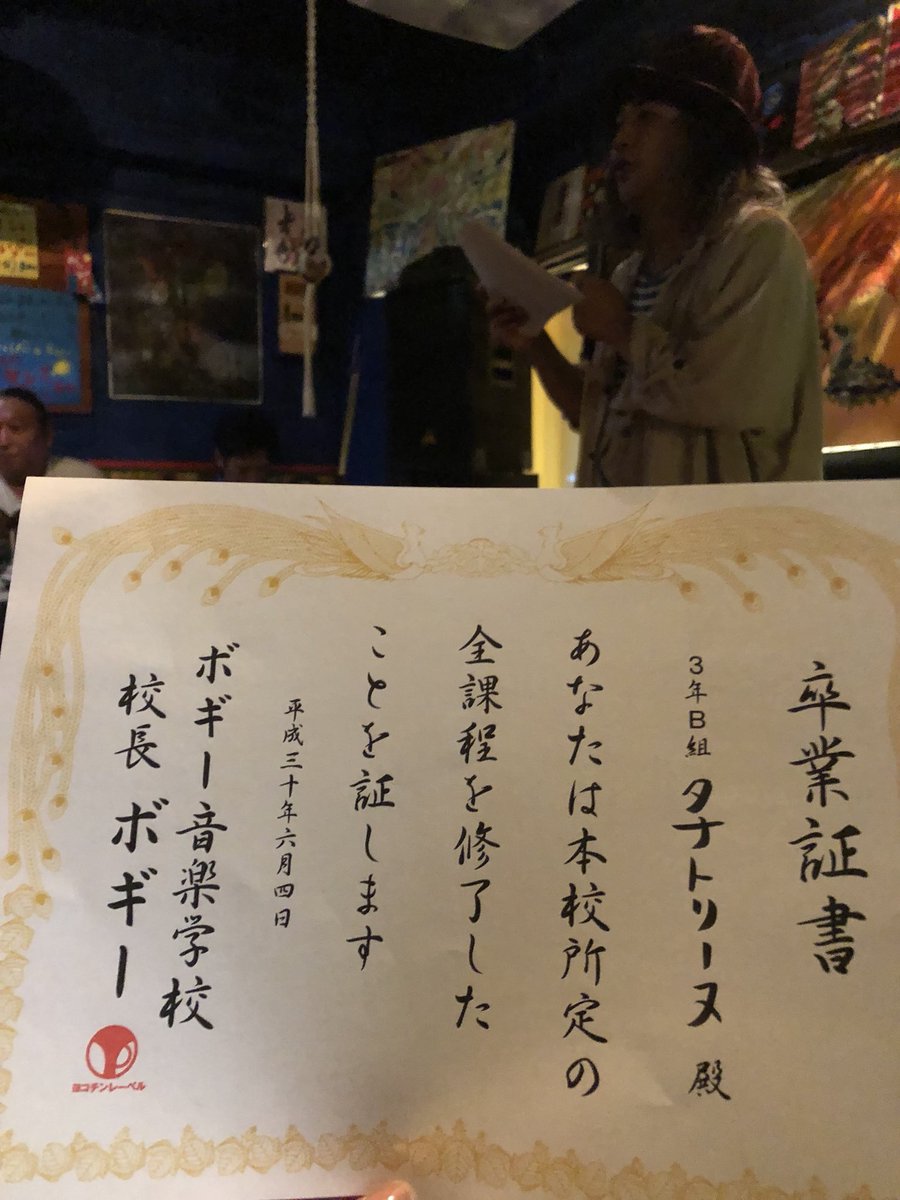 卒業証書
3年B組 タナトリーヌ 殿
あなたは本校所定の
全課程を修了した
ことを証します
平成三十年六月四日
ボギー音楽学校
校長 ボギー
ヨコチンレーベル